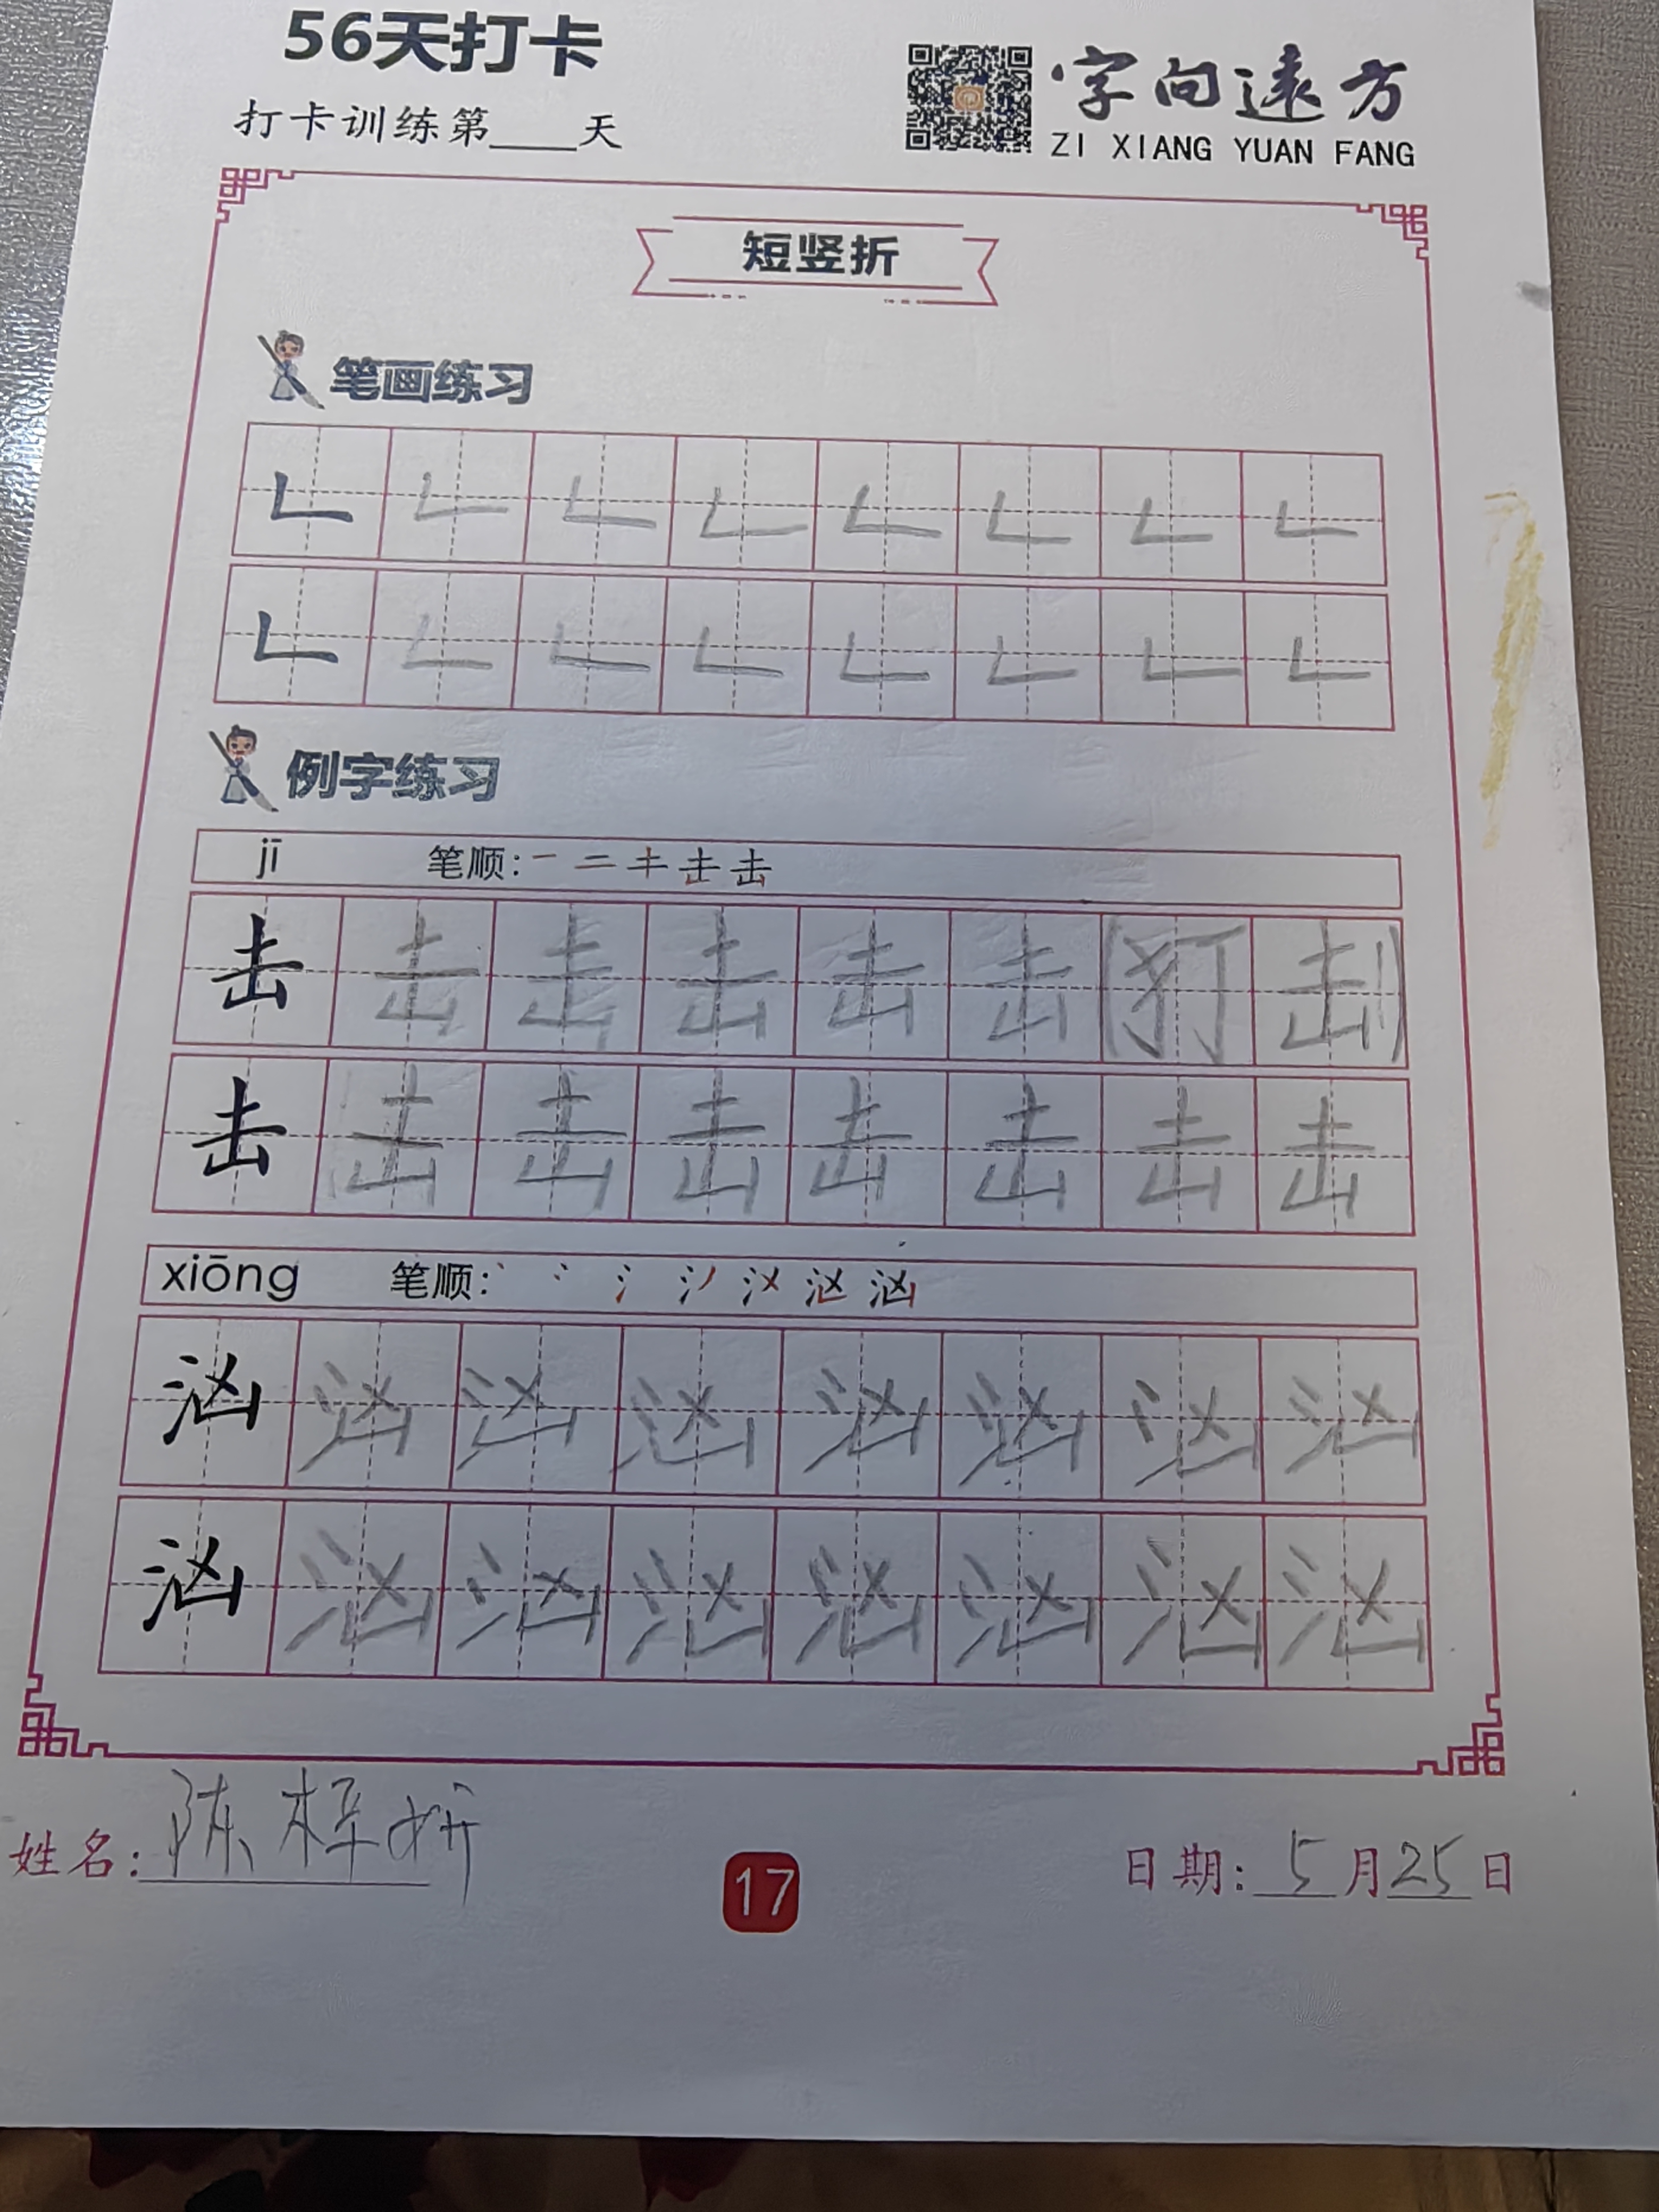 56天打卡
字向远方
打卡训练第____天
ZI XIANG YUAN FANG
短竖折
笔画练习
𠃊 𠃊 𠃊 𠃊 𠃊 𠃊 𠃊 𠃊
𠃊 𠃊 𠃊 𠃊 𠃊 𠃊 𠃊 𠃊
例字练习
jī 笔顺: 一 二 キ 击 击
击 击 击 击 击 击 (打 击)
击 击 击 击 击 击 击 击
xiōng 笔顺: 汹 汹
汹 汹 汹 汹 汹 汹 汹 汹
汹 汹 汹 汹 汹 汹 汹 汹
姓名: 陈梓妍
17
日期: 5月25日